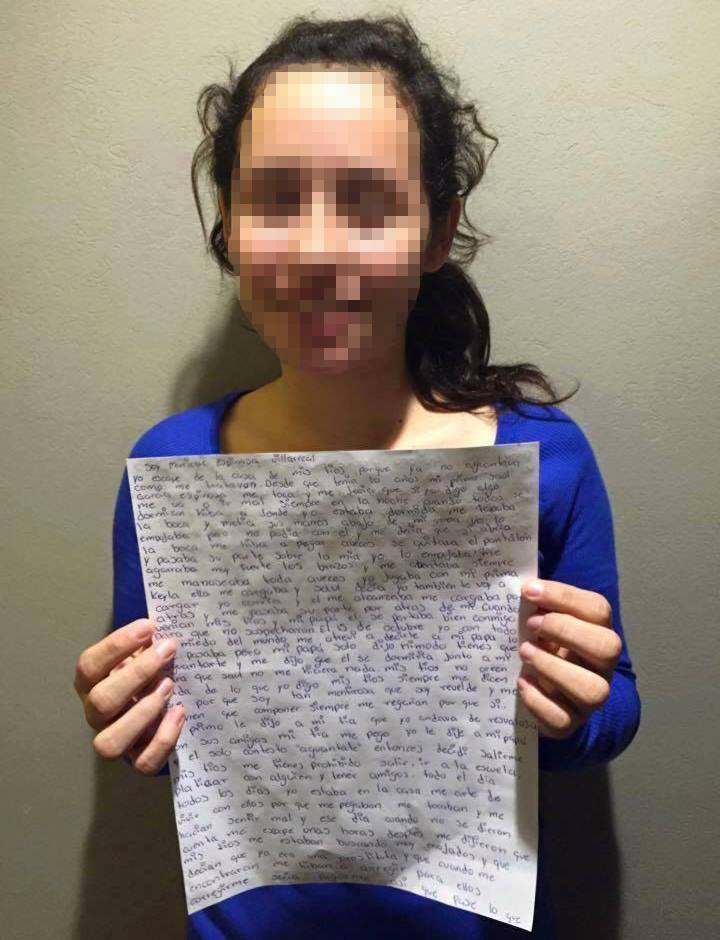 Soy Marianne Espinosa Villarreal
yo escape de la casa de mis tios porque ya no aguantava
como me trataban Desde que tenia 10 años mi primo saul
Garcia Espinosa me toca y me decia que si yo digo algo
me va ir mal siempre en la noche cuando todos se
dormian iba a donde yo estaba dormida me tapaba
la boca y metia sus manos abajo de mi ropa yo lo
empujaba pero no podia con el y me decia si abria
la boca me iba a pegar aveces se quitava el pantallon
y pasaba su parte sobre la mia yo lo empujaba me
agarraba muy fuerte los brazos y me aventaba siempre
me manoseaba toda aveces yo jugaba con mi prima
Keyla ella me cargaba y saul decia yo tambien te voy a
cargar yo corria y el me alcanzaba me cargaba por
atras y me pasaba su parte por atras de mi cuando
venian mis tios y mi papá el se portaba bien conmigo
para que no sospecharan el 15 de octubre yo con todo
miedo del mundo me atrevi a decirle a mi papá lo
pasaba pero mi papá solo dijo nimodo tienes que
aguantarte y me dijo que el se dormiria junto a mi
que saul no me hiciera nada mis tios no creen
nada de lo que yo digo mis tios siempre me dicen
por que soy tan mentirosa que soy revelde y me
tienen que componer siempre me regañan por que si.
primo le dijo a mi tia que yo andava de
con sus amigos mi tia me pego yo le dije a mi papá
el solo contesto "aguantate" entonces decidi salirme
mis tios me tienes prohibido salir, ir a la escuela,
platicar con alguien y tener amigos todo el dia
todos los dias yo estaba en la casa me arte de
vivir con ellos por que me pegaban me tocaban y me
hacian sentir mal y ese dia cuando no se dieron
cuenta me escape unas horas después me dijieron que
mis tios me estaban buscando muy enojados y que
decian que yo era una prostituta y que cuando me
encontraran me iban a corregir para ellos
corregirme seria pegarme que pase lo que